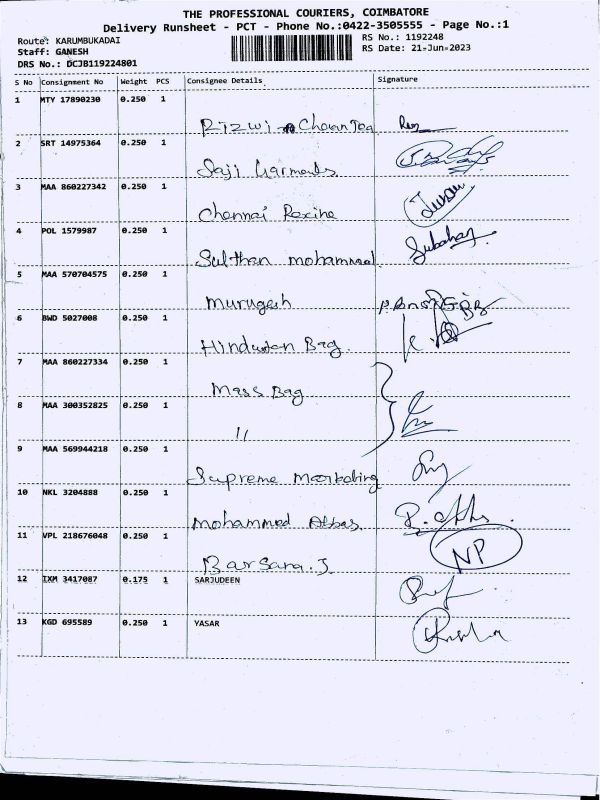 THE PROFESSIONAL COURIERS, COIMBATORE
Delivery Runsheet - PCT - Phone No.:0422-3505555 - Page No.:1
Route: KARUMBUKADAI
RS No.: 1192248
Staff: GANESH
RS Date: 21-Jun-2023
DRS No.: DCJB119224801
S No Consignment No Weight PCS Consignee Details Signature
1 MTY 17890230 0.250 1
Rizwi
2 SRT 14975364 0.250 1
Saji Garments
3 MAA 860227342 0.250 1
Chennai Rexine
4 POL 1579987 0.250 1
Sulthan mohammed Subahan
5 MAA 570704575 0.250 1
Murugesh
6 BWD 5027008 0.250 1
Hindustan Bag
7 MAA 860227334 0.250 1
Mass Bag
8 MAA 300352825 0.250 1
11
9 MAA 569944218 0.250 1
Supreme Marketing
10 NKL 3204888 0.250 1
Mohammed Abbas
11 VPL 218676048 0.250 1
Barsana.J NP
12 IXM 3417087 0.175 1 SARJUDEEN
13 KGD 695589 0.250 1 YASAR